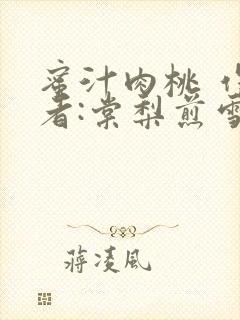 蜜汁肉桃 作
者:棠梨煎雪
蒋凌风